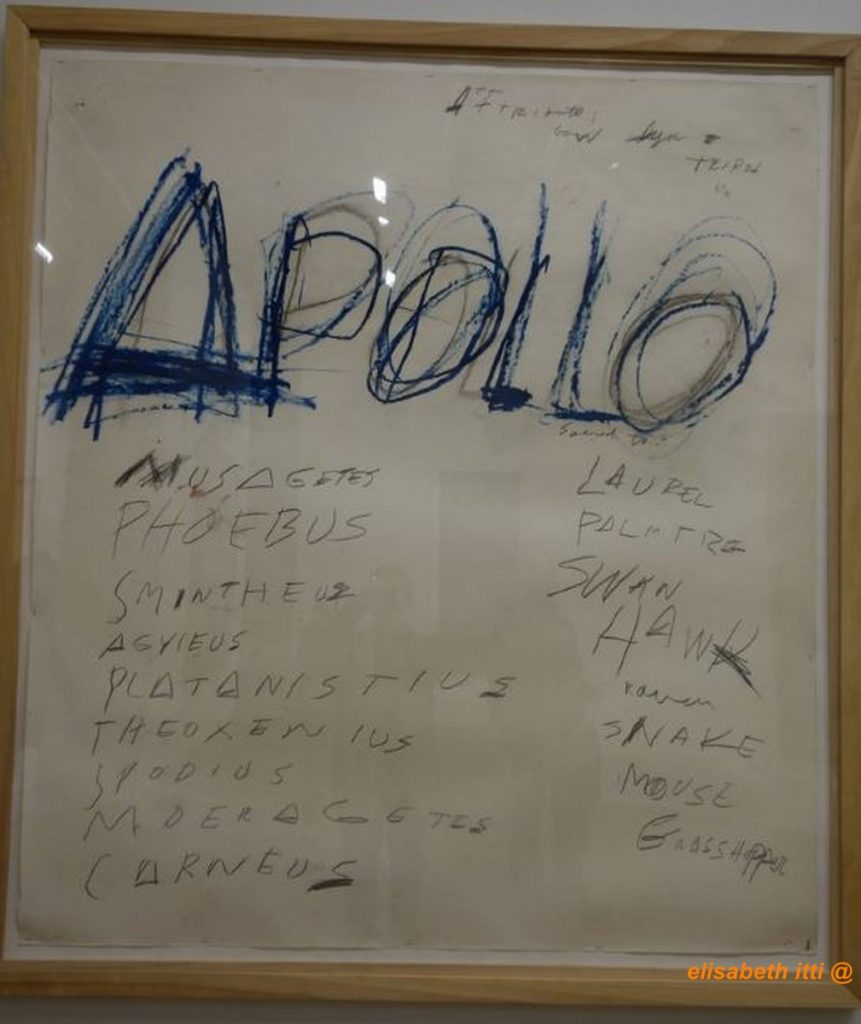 Attributes
Bow lyre
TRIPOD
APOLLO
Sacred to
MUSAGETES
PHOEBUS
SMINTHEUS
AGYIEUS
PLATANISTIUS
THEOXENIUS
SPODIUS
MOERAGETES
CARNEUS
LAUREL
PALM TREE
SWAN
HAWK
raven
SNAKE
MOUSE
GRASSHOPPER
elisabeth itti @